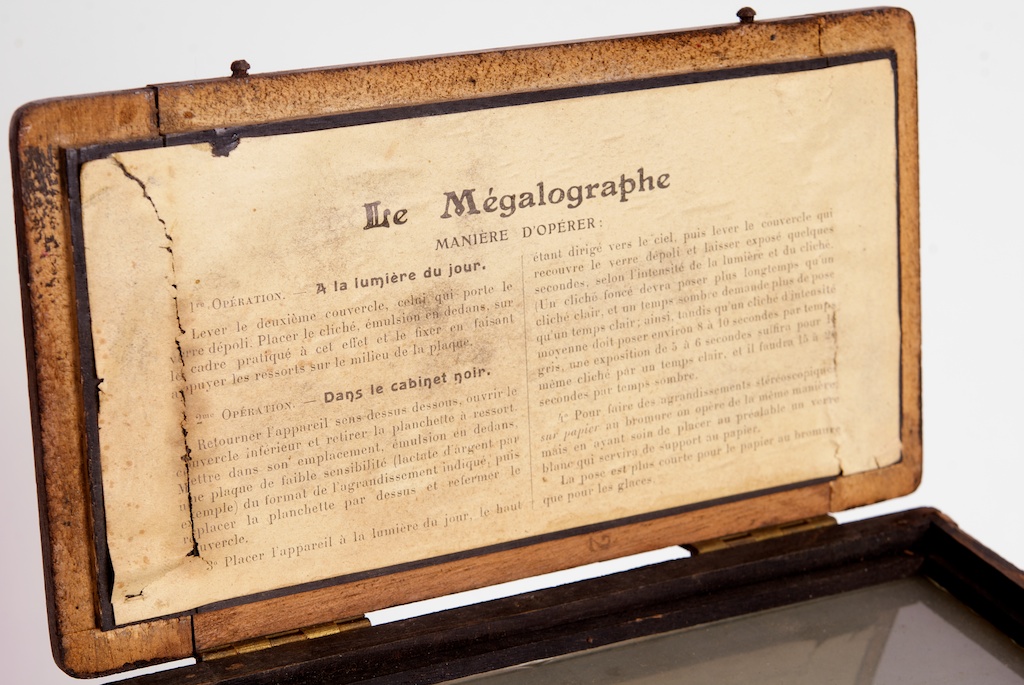 Le Mégalographe
MANIÈRE D'OPÉRER :
A la lumière du jour.
1re OPÉRATION. —
Lever le deuxième couvercle, celui qui porte le
verre dépoli. Placer le cliché, émulsion en dedans, sur
le cadre pratiqué à cet effet et le fixer en faisant
appuyer les ressorts sur le milieu de la plaque.
2me OPÉRATION. — Dans le cabinet noir.
Retourner l'appareil sens dessus dessous, ouvrir le
couvercle inférieur et retirer la planchette à ressort.
Mettre dans son emplacement, émulsion en dedans,
une plaque de faible sensibilité (lactate d'argent par
exemple) du format de l'agrandissement indiqué, puis
replacer la planchette par dessus et refermer le
couvercle.
3o Placer l'appareil à la lumière du jour, le haut
étant dirigé vers le ciel, puis lever le couvercle qui
recouvre le verre dépoli et laisser exposé quelques
secondes, selon l'intensité de la lumière et du cliché.
(Un cliché foncé devra poser plus longtemps qu'un
cliché clair, et un temps sombre demande plus de pose
qu'un temps clair; ainsi, tandis qu'un cliché d'intensité
moyenne doit poser environ 8 à 10 secondes par temps
gris, une exposition de 5 à 6 secondes suffira pour le
même cliché par un temps clair, et il faudra 15 à
secondes par temps sombre.
4o Pour faire des agrandissements stéréoscopiques
sur papier au bromure on opère de la même manière,
mais en ayant soin de placer au préalable un verre
blanc qui servira de support au papier.
La pose est plus courte pour le papier au bromure
que pour les glaces.